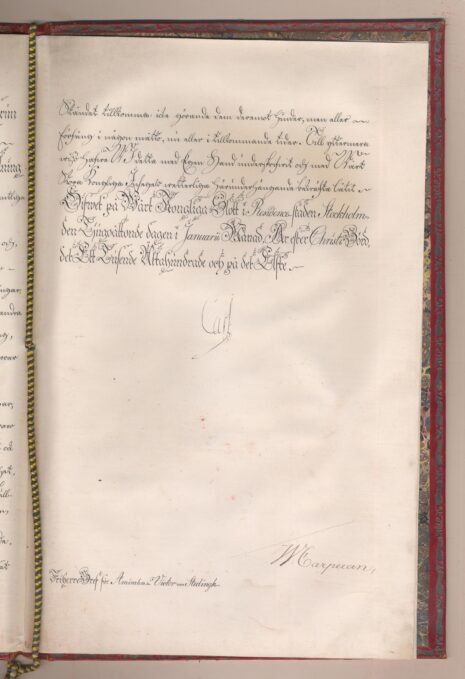 Ståndet tillkomma icke görande dem deremot hinder, men eller
förfång i någon måtto, nu eller i tillkommande tider. Till yttermera
visso hafve Wi detta med Egen Hand underskrifvit och med Wårt
Stora Kongliga Insegels vederliga härunderhängande bekräfta låtit.
Gifwet på Wårt Kongliga Slott i Residence-staden Stockholm
den Tjugoåttonde dagen i Januarii Månad År efter Christi Börd
det Ett Tusende Åttahundrade och på det Elfte.
Carl
Friherre Bref för Amiralen Victor von Stedingk